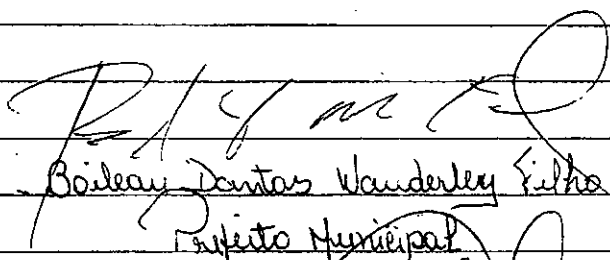 Boileau Dantas Wanderley Filho
Prefeito Municipal